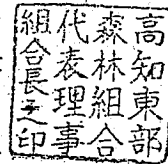 高知東部
森林組合
代表理事
組合長之印